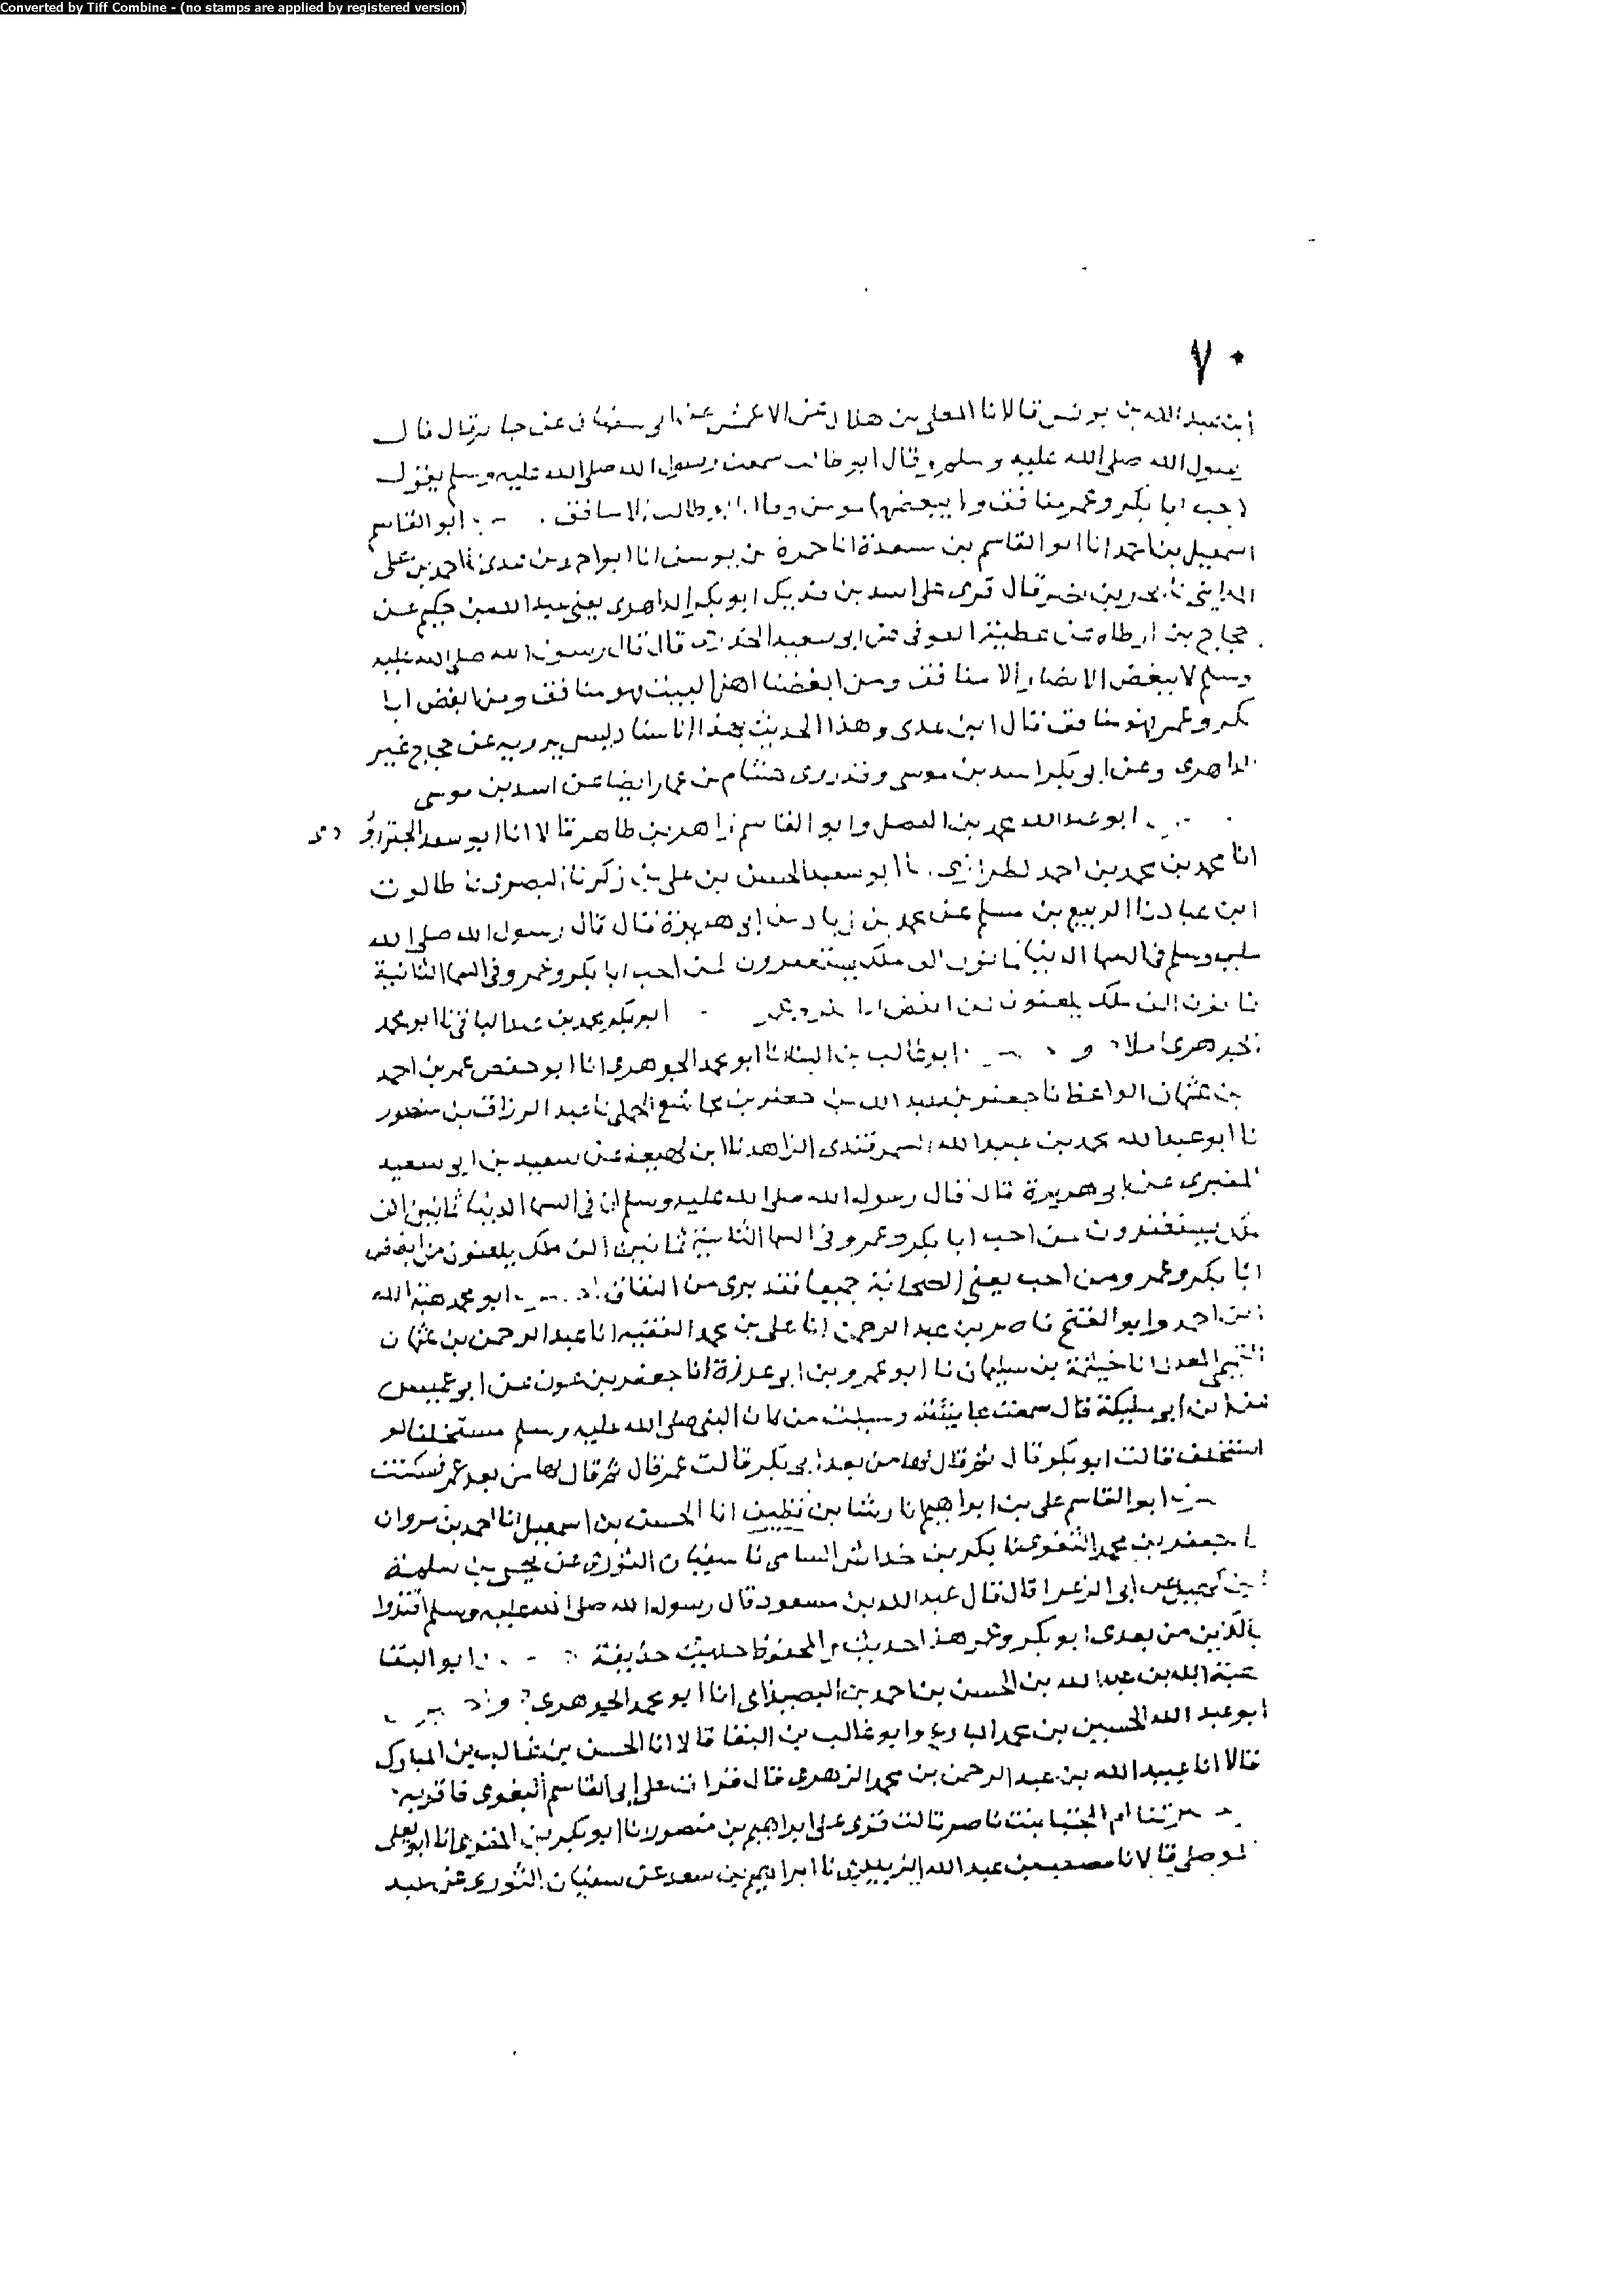 Converted by Tiff Combine - (no stamps are applied by registered version)
٧٠
ابن عبد الله بن يونس قالا نا المعلى بن هلال عن الاعمش عن ابى سفيان عن جابر قال قال
رسول الله صلى الله عليه وسلم وقال ابو غالب سمعت رسول الله صلى الله عليه وسلم يقول
ابا بكر وعمر منافق ولا يبغضهما مومن وما ابو طالب الا منافق ابو القاسم
اسمعيل بن احمد انا ابو القاسم بن مسعدة انا حمزة بن يوسف انا ابو احمد بن عدى نا احمد بن على
المداينى نا بحر بن نصر قال قرى على اسد بن موسى ابو بكر الداهرى يعنى عبد الله بن حكيم عن
حجاج بن ارطاه عن عطية العوفى عن ابى سعيد الخدرى قال قال رسول الله صلى الله عليه
وسلم لا يبغض الانصار الا منافق ومن ابغضنا اهل البيت فهو منافق ومن ابغض ابا
بكر وعمر فهو منافق قال ابن عدى وهذا الحديث بهذا الاسناد ليس يرويه عن حجاج غير
الداهرى وعن ابى بكر اسد بن موسى وقد روى هشام بن عمار ايضا عن اسد بن موسى
ابو عبد الله محمد بن الفضل وابو القاسم زاهر بن طاهر قالا انا ابو سعد الجنزرودى
انا محمد بن محمد بن احمد الطرازى نا ابو سعيد الحسن بن على بن زكريا البصرى نا طالوت
ابن عباد نا الربيع بن مسلم عن محمد بن زياد عن ابى هريرة قال قال رسول الله صلى الله
عليه وسلم فى السما الدنيا ثمانون الف ملك يستغفرون لمن احب ابا بكر وعمر وفى السما الثانية
ثمانون الف ملك يلعنون من ابغض ابا بكر وعمر ابو بكر محمد بن عبد الباقى نا ابو محمد
الجوهرى املا و ابو غالب بن البنا نا ابو محمد الجوهرى انا ابو حفص عمر بن احمد
بن عثمان الواعظ نا جعفر بن عبد الله بن جعفر بن مجاشع الختلى نا عبد الرزاق بن منصور
نا ابو عبد الله محمد بن عبد الله السمرقندى الزاهد نا ابن لهيعة عن سعيد بن ابى سعيد
المقبرى عن ابى هريرة قال قال رسول الله صلى الله عليه وسلم ان فى السما الدنيا ثمانين الف
ملك يستغفرون لمن احب ابا بكر وعمر وفى السما الثانية ثمانين الف ملك يلعنون من ابغض
ابا بكر وعمر ومن احب يعنى الصحابة جميعا فقد برى من النفاق ابو محمد هبة الله
ابن احمد وابو الفتح ناصر بن عبد الرحمن انا على بن محمد الفقيه انا عبد الرحمن بن عثمان
التميمى المعدل انا خيثمة بن سليمان نا ابو عمرو بن ابى عزرة انا جعفر بن عون عن ابى عميس
عن ابن ابى مليكة قال سمعت عايشة وسيلت من كان النبى صلى الله عليه وسلم مستخلفا لو
استخلف قالت ابو بكر قال ثم قال لها من بعد ابى بكر قالت عمر قال ثم قال لها من بعد عمر فسكتت
ابو القاسم على بن ابراهيم انا رشا بن نظيف انا الحسن بن اسمعيل انا احمد بن مروان
نا جعفر بن محمد نا بكر بن خداش الشامى نا سفيان الثورى عن يحيى بن سلمة
بن كهيل عن ابى الزعرا قال قال عبد الله بن مسعود قال رسول الله صلى الله عليه وسلم اقتدوا
بالذين من بعدى ابو بكر وعمر هذا حديث والمحفوظ حديث حذيفة ابو البقا
هبة الله بن عبد الله بن الحسن بن احمد بن البصيدانى انا ابو محمد الجوهرى
ابو عبد الله الحسين بن محمد البارع وابو غالب بن البنا قالا انا الحسن بن غالب بن المبارك
قالا انا عبيد الله بن عبد الرحمن بن محمد الزهرى قال قرات على ابى القاسم البغوى فاقر به
ام المجتبا بنت ناصر قالت قرى على ابراهيم بن منصور انا ابو بكر بن المقرى انا ابو يعلى
الموصلى قالا نا مصعب بن عبد الله الزبيرى نا ابراهيم بن سعد عن سفيان الثورى عن عبد